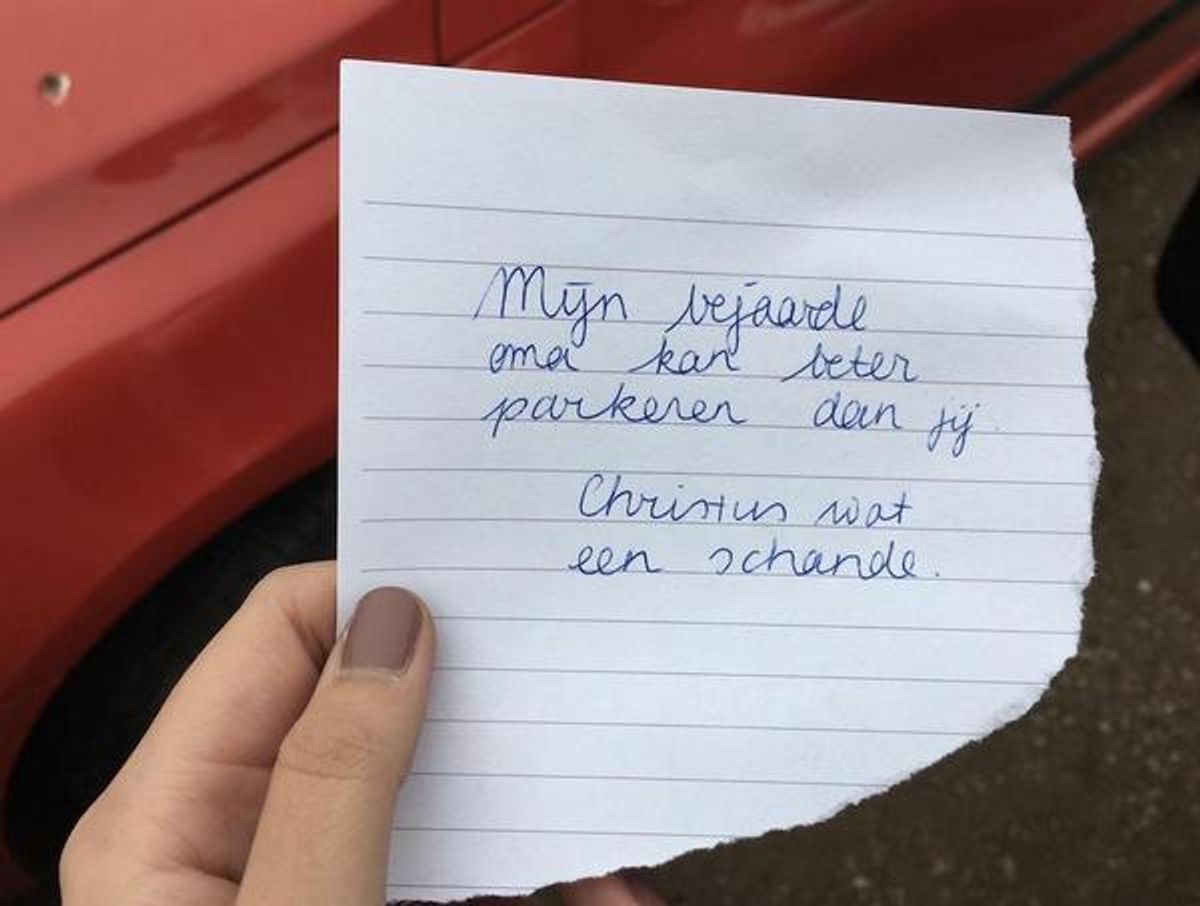 Mijn bejaarde
oma kan beter
parkeren dan jij.
Christus wat
een schande.